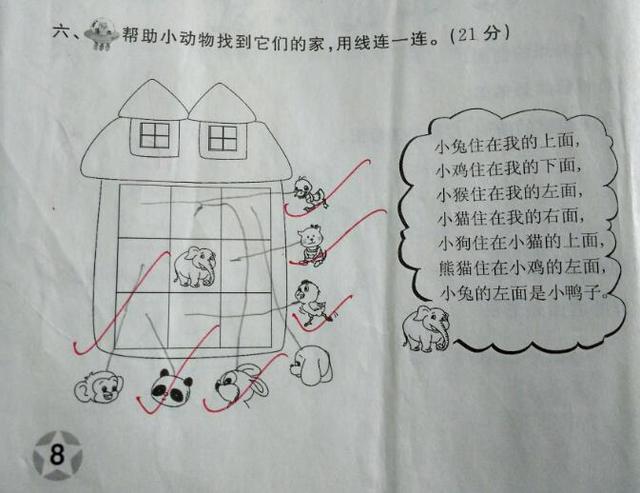 六、帮助小动物找到它们的家,用线连一连。(21分)
小兔住在我的上面,
小鸡住在我的下面,
小猴住在我的左面,
小猫住在我的右面,
小狗住在小猫的上面,
熊猫住在小鸡的左面,
小兔的左面是小鸭子。
8